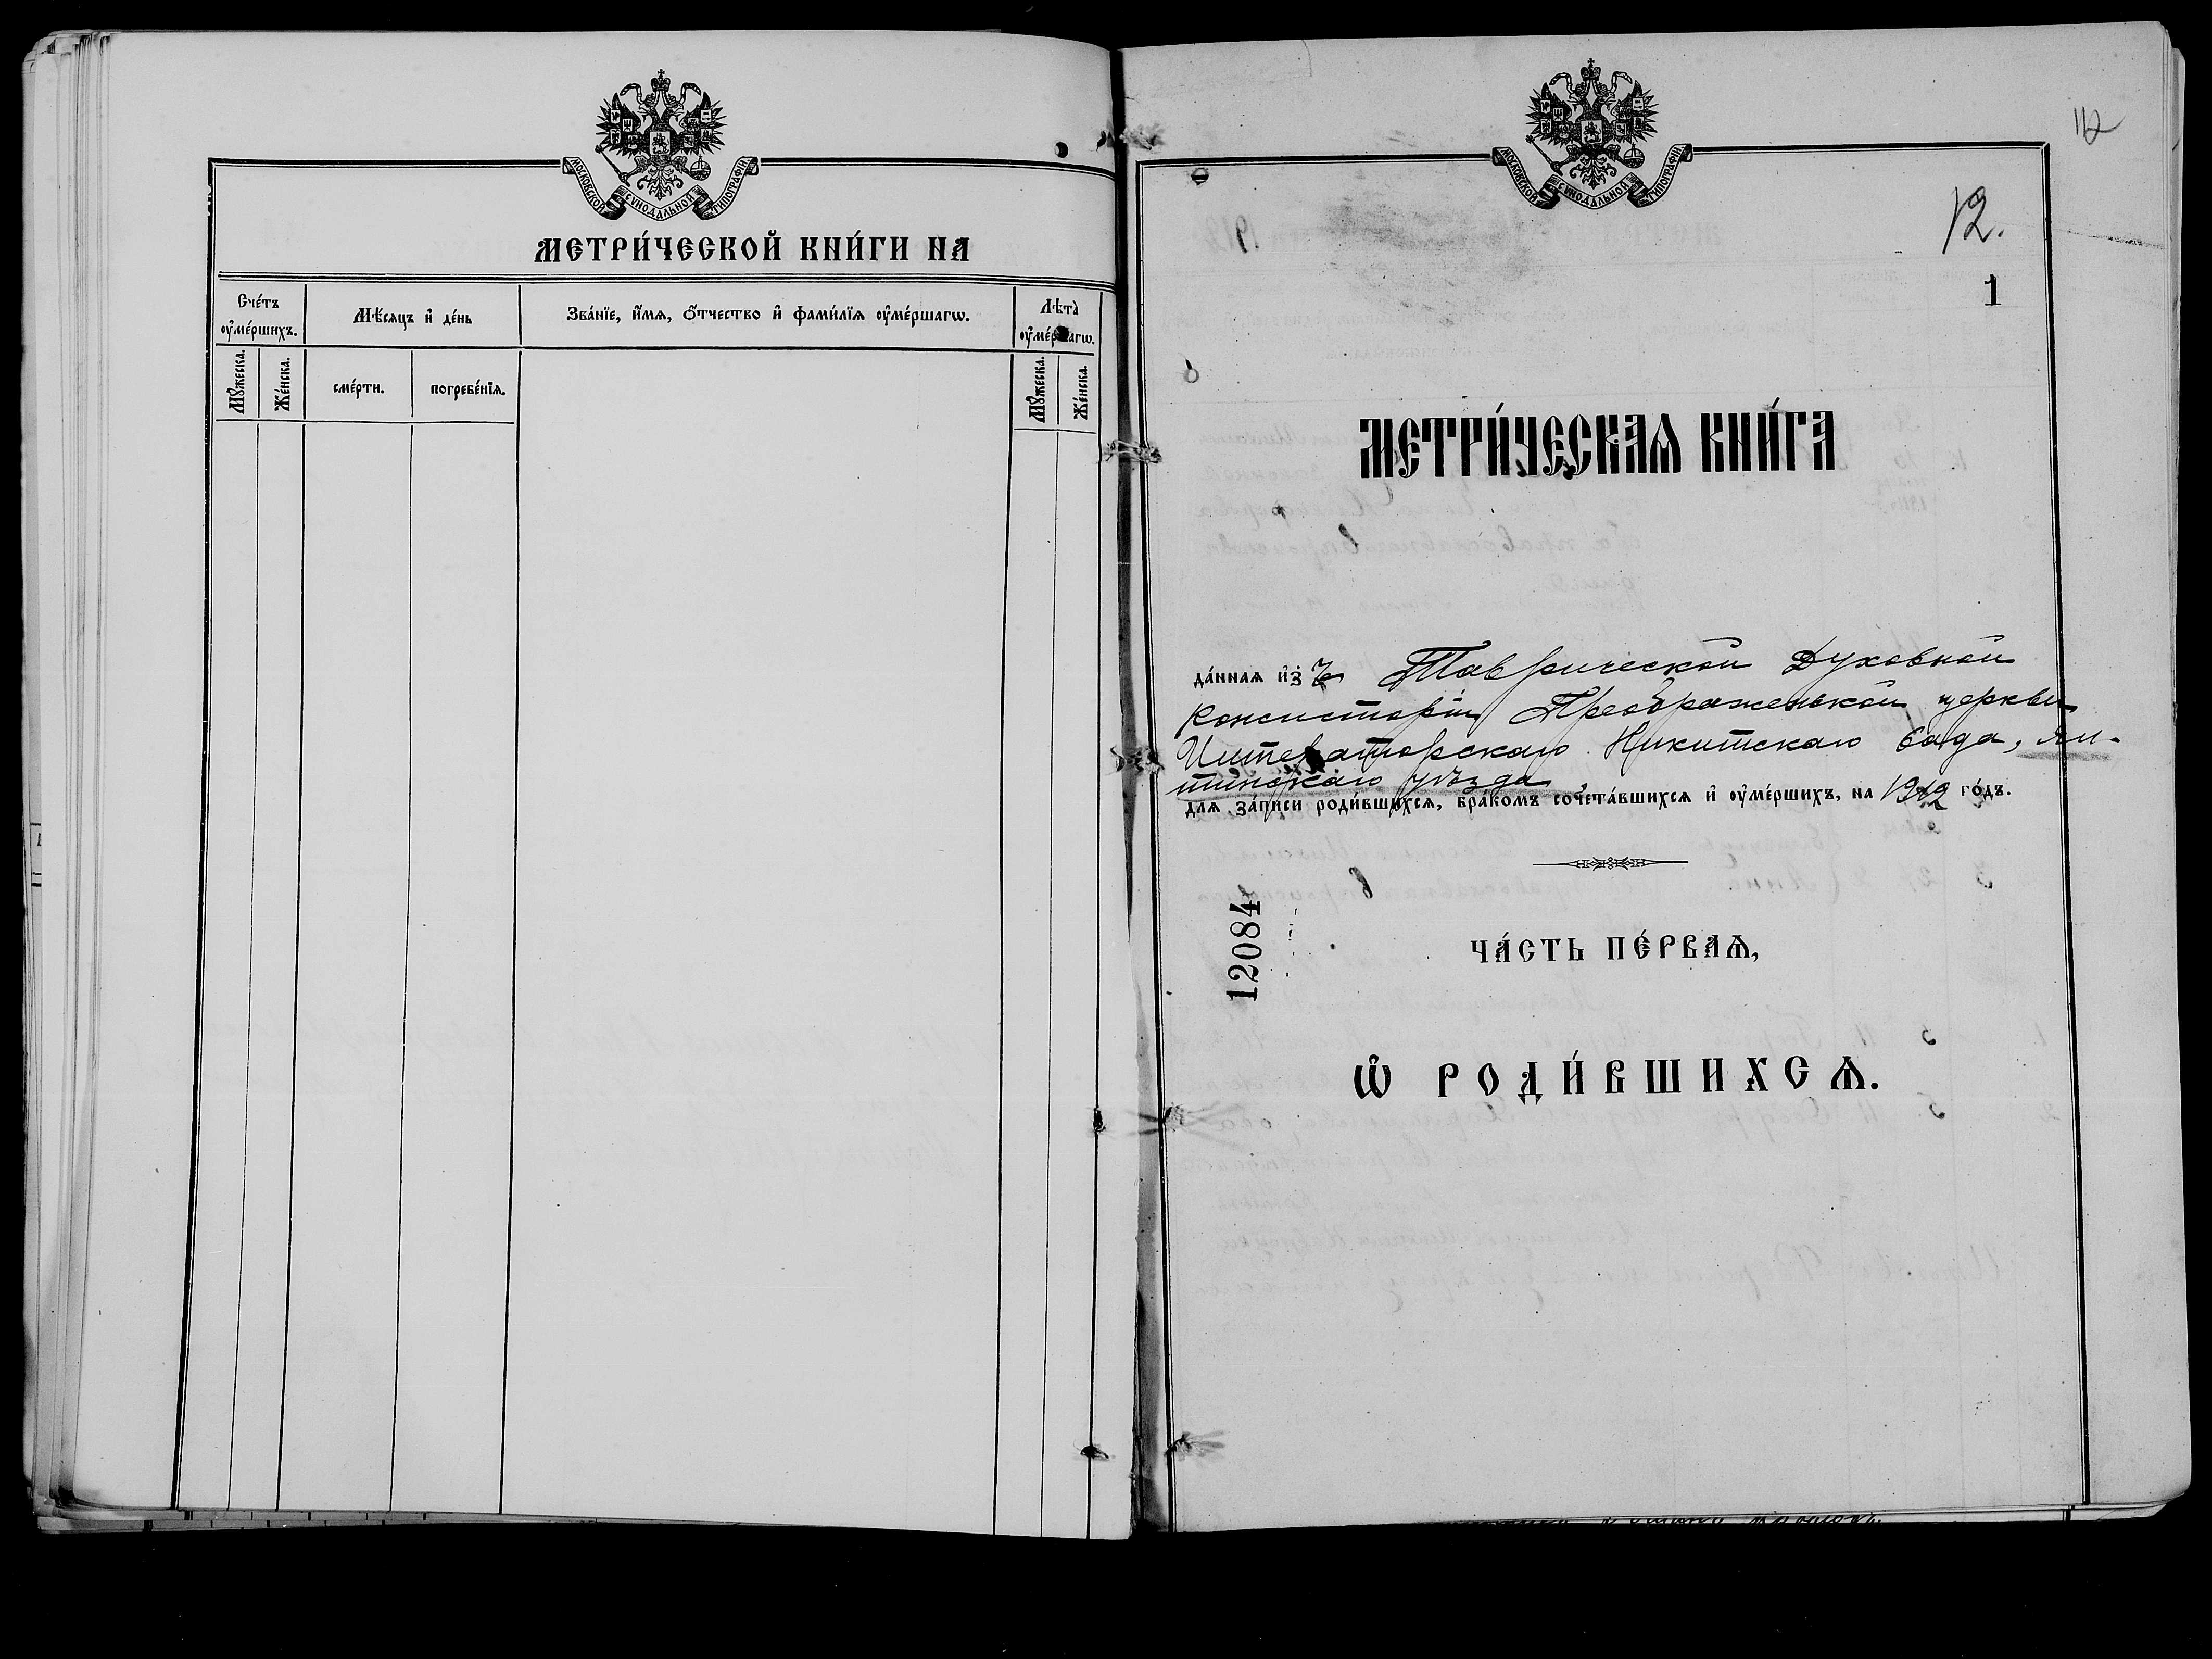 МОСКОВСКОЙ СѴНОДАЛЬНОЙ ТИПОГРАФІИ
МЕТРИ́ЧЕСКОЙ КНИ́ГИ НА
Сче́тъ ᲂу҆ме́ршихъ.
Мѣ́сѧцъ и҆ де́нь
Зва́нїе, и҆́мѧ, ѻ҆́тчество и҆ фами́лїѧ ᲂу҆ме́ршагѡ.
Лѣ́та ᲂу҆ме́ршагѡ.
Мꙋ́жеска.
Же́нска.
сме́рти.
погребе́нїѧ.
Мꙋ́жеска.
Же́нска.
112
МОСКОВСКОЙ СѴНОДАЛЬНОЙ ТИПОГРАФІИ
12.
1
МЕТРИ́ЧЕСКАѦ КНИ́ГА
да́ннаѧ и҆зъ Таврической Духовной
Консисторіи Преображенской церкви
Императорскаго Никитскаго Сада, Ял-
тинскаго уѣзда
длѧ за́писи роди́вшихсѧ, бра́комъ сочета́вшихсѧ и҆ ᲂу҆ме́ршихъ, на 1912 го́дъ.
12084
ЧА́СТЬ ПЕ́РВАѦ,
Ѡ҆ РОДИ́ВШИХСѦ.